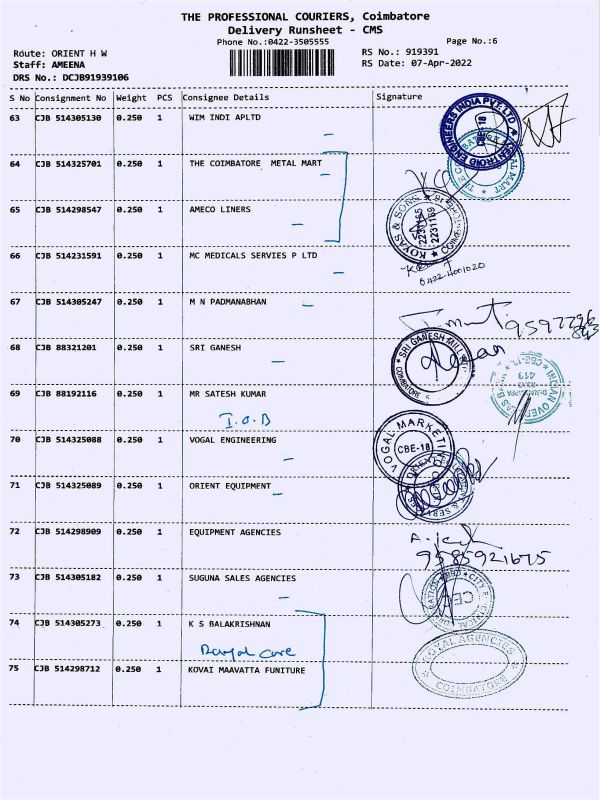 THE PROFESSIONAL COURIERS, Coimbatore
Delivery Runsheet - CMS
Phone No.:0422-3505555 Page No.:6
Route: ORIENT H W RS No.: 919391
Staff: AMEENA RS Date: 07-Apr-2022
DRS No.: DCJB91939106
S No Consignment No Weight PCS Consignee Details Signature
63 CJB 514305130 0.250 1 WIM INDI APLTD
CENTROID ENGINEERS INDIA PVT. LTD
CBE-18
64 CJB 514325701 0.250 1 THE COIMBATORE METAL MART
65 CJB 514298547 0.250 1 AMECO LINERS
KOVAS & SONS
2230165
2231169
66 CJB 514231591 0.250 1 MC MEDICALS SERVIES P LTD
0422-4001020
67 CJB 514305247 0.250 1 M N PADMANABHAN
68 CJB 88321201 0.250 1 SRI GANESH
SRI GANESH MILL
COIMBATORE
69 CJB 88192116 0.250 1 MR SATESH KUMAR
I.O.B
70 CJB 514325088 0.250 1 VOGAL ENGINEERING
VOGAL MARKETI
CBE-18
71 CJB 514325089 0.250 1 ORIENT EQUIPMENT
72 CJB 514298909 0.250 1 EQUIPMENT AGENCIES
9585921675
73 CJB 514305182 0.250 1 SUGUNA SALES AGENCIES
74 CJB 514305273 0.250 1 K S BALAKRISHNAN
care
75 CJB 514298712 0.250 1 KOVAI MAAVATTA FUNITURE
ROYAL AGENCIES
COIMBATORE